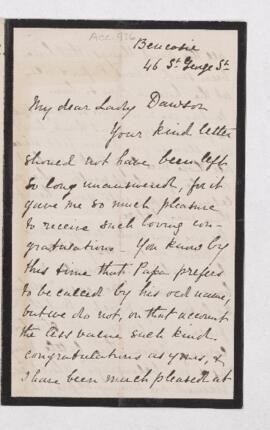 Acc. 916
46 St. George St.
My dear Lady Dawson
Your kind letter
should not have been left
so long unanswered, for it
gave me so much pleasure
to receive such loving con-
gratulations - You know by
this time that Papa prefers
to be called by his old name,
but we do not, on that account
the less value such kind
congratulations as yours, &
I have been much pleased at